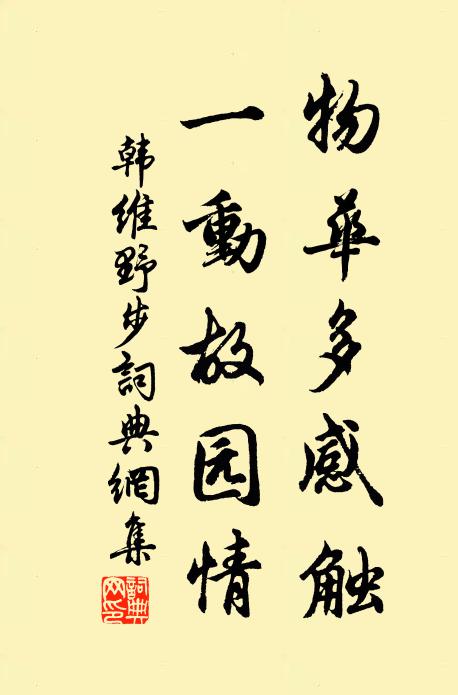 物华多感触
一動故园情
韩维野步詞典網集
詞典网印